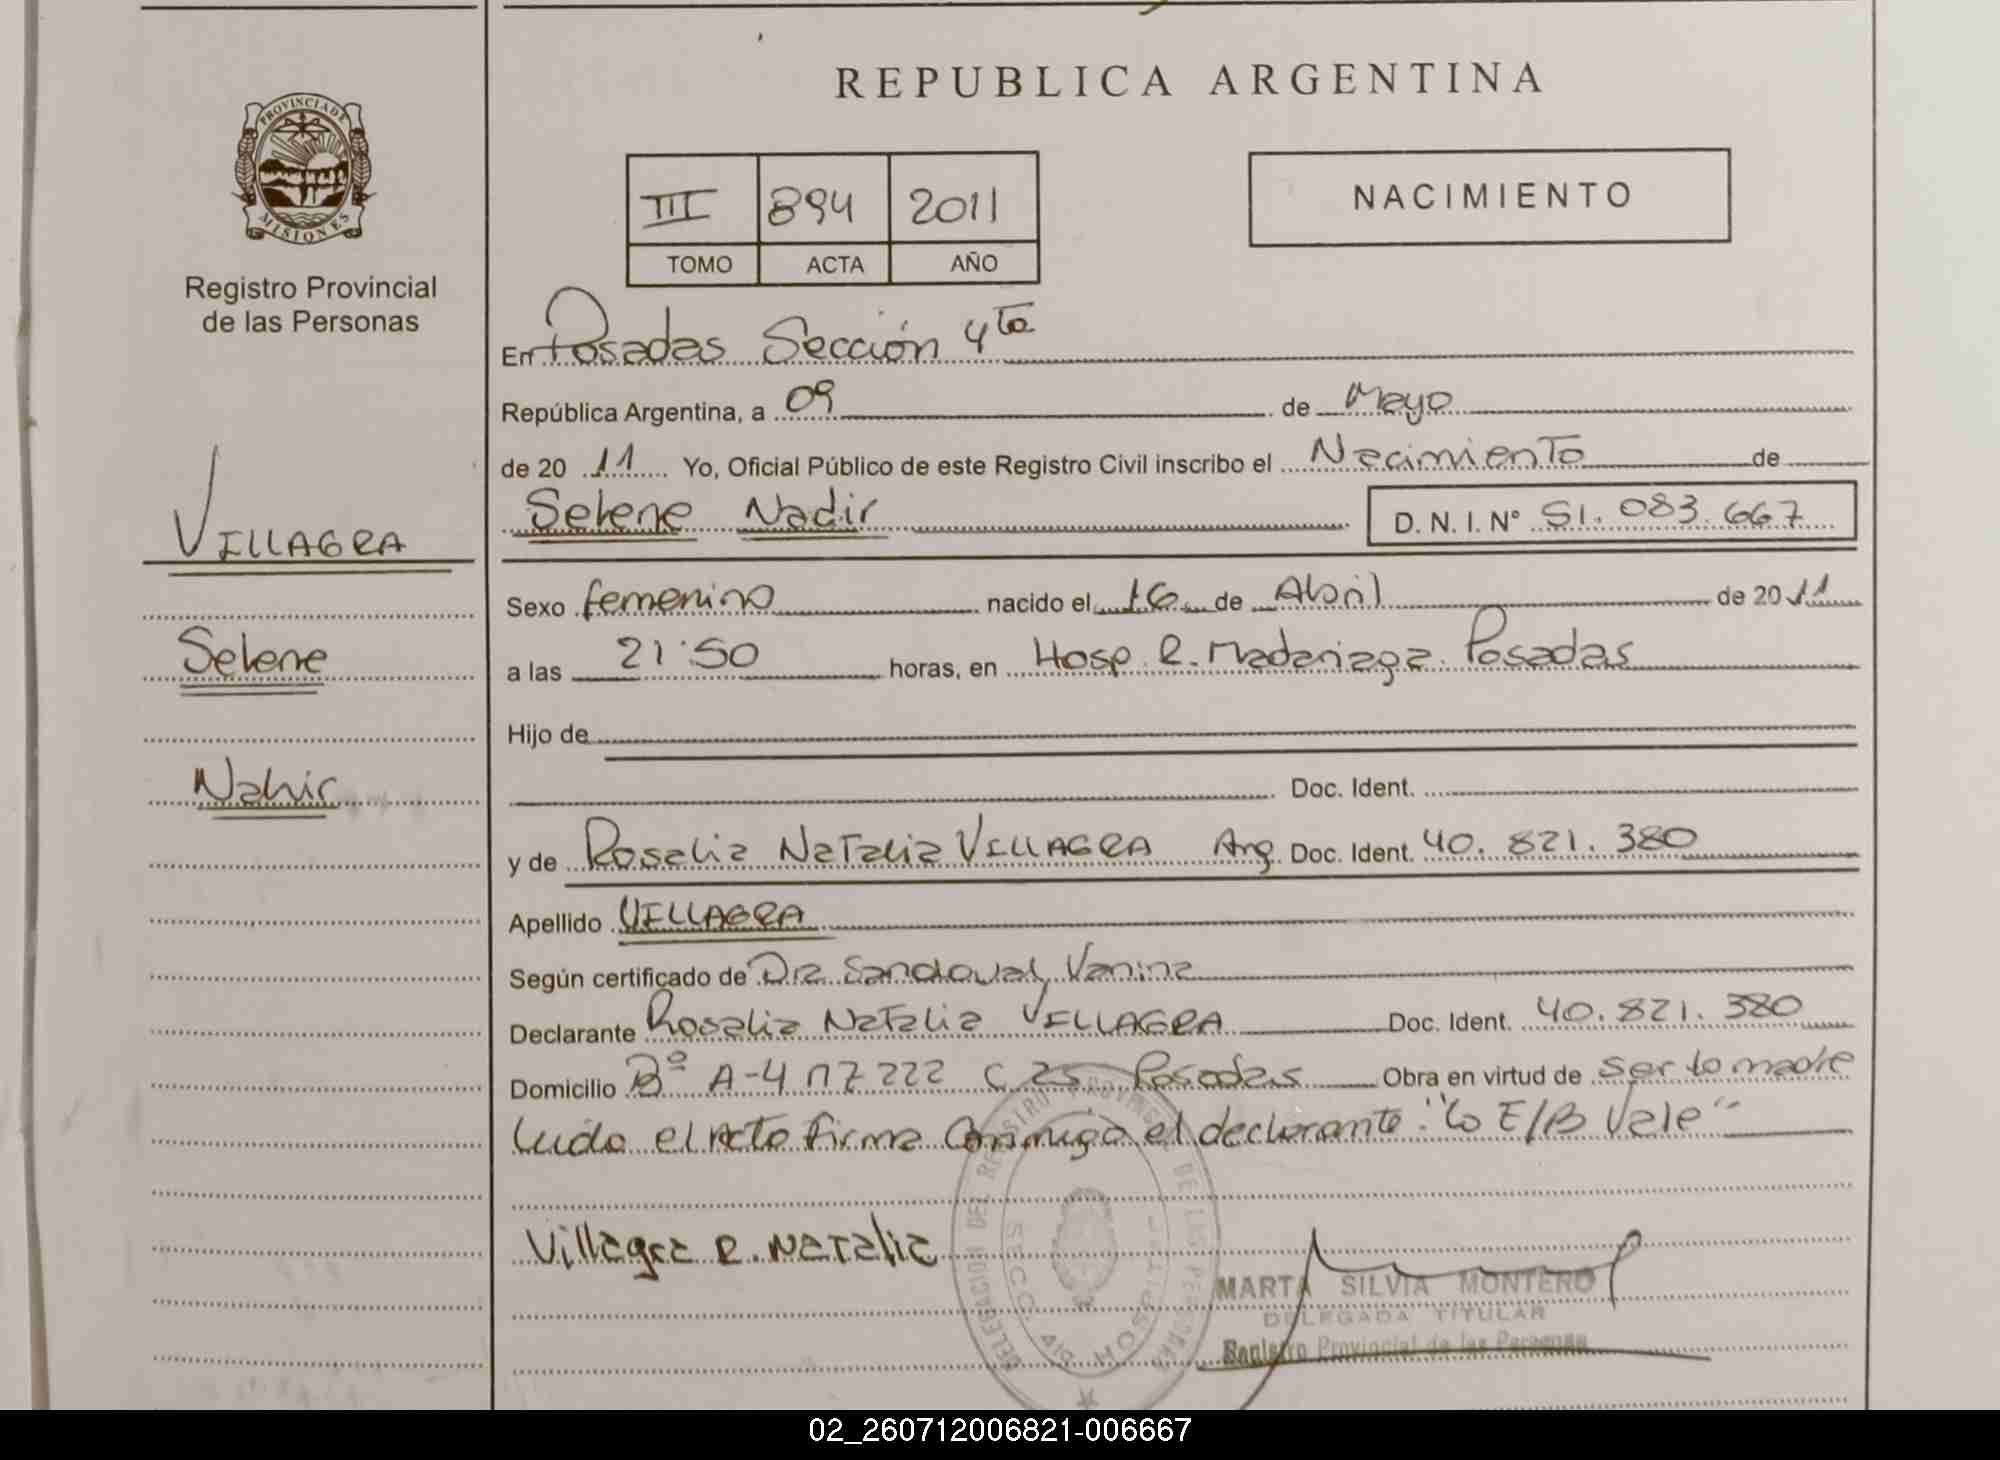 PROVINCIA DE
MISIONES
Registro Provincial
de las Personas
VILLAGRA
Selene
Nahir
REPUBLICA ARGENTINA
III 894 2011
TOMO ACTA AÑO
NACIMIENTO
En Posadas Sección 4ta
República Argentina, a 09 de Mayo
de 20 11 Yo, Oficial Público de este Registro Civil inscribo el Nacimiento de
Selene Nadir D. N. I. Nº 51.083.667
Sexo femenino nacido el 16 de Abril de 20 11
a las 21:50 horas, en Hosp. R. Madariaga. Posadas
Hijo de
Doc. Ident.
y de Rosalia Natalia VILLAGRA Arg Doc. Ident. 40.821.380
Apellido VILLAGRA
Según certificado de Dra Sandoval, Vanina
Declarante Rosalia Natalia VILLAGRA Doc. Ident. 40.821.380
Domicilio Bº A-4 MZ 222 C 25 Posadas Obra en virtud de ser la madre
Leida el Acta firma conmigo el declarante "Lo E/B Vale"
Villagra R. Natalia
DELEGACION DEL REGISTRO PROVINCIAL DE LAS PERSONAS
SECC. 4ta HOSPITAL
MARTA SILVIA MONTERO
DELEGADA TITULAR
Registro Provincial de las Personas
02_260712006821-006667